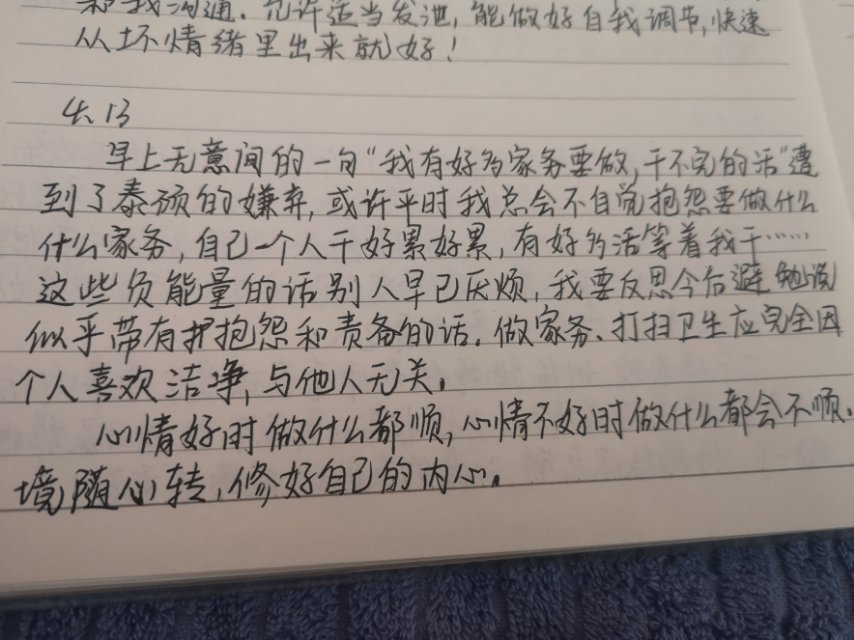 和我沟通.允许适当发泄,能做好自我调节,快速
从坏情绪里出来就好!
4.13
早上无意间的一句“我有好多家务要做,干不完的活”遭
到了泰硕的嫌弃,或许平时我总会不自觉抱怨要做什么
什么家务,自己一个人干好累好累,有好多活等着我干……
这些负能量的话别人早已厌烦,我要反思今后避免说
似乎带有抱怨和责备的话.做家务、打扫卫生应完全因
个人喜欢洁净,与他人无关。
心情好时做什么都顺,心情不好时做什么都会不顺.
境随心转,修好自己的内心。